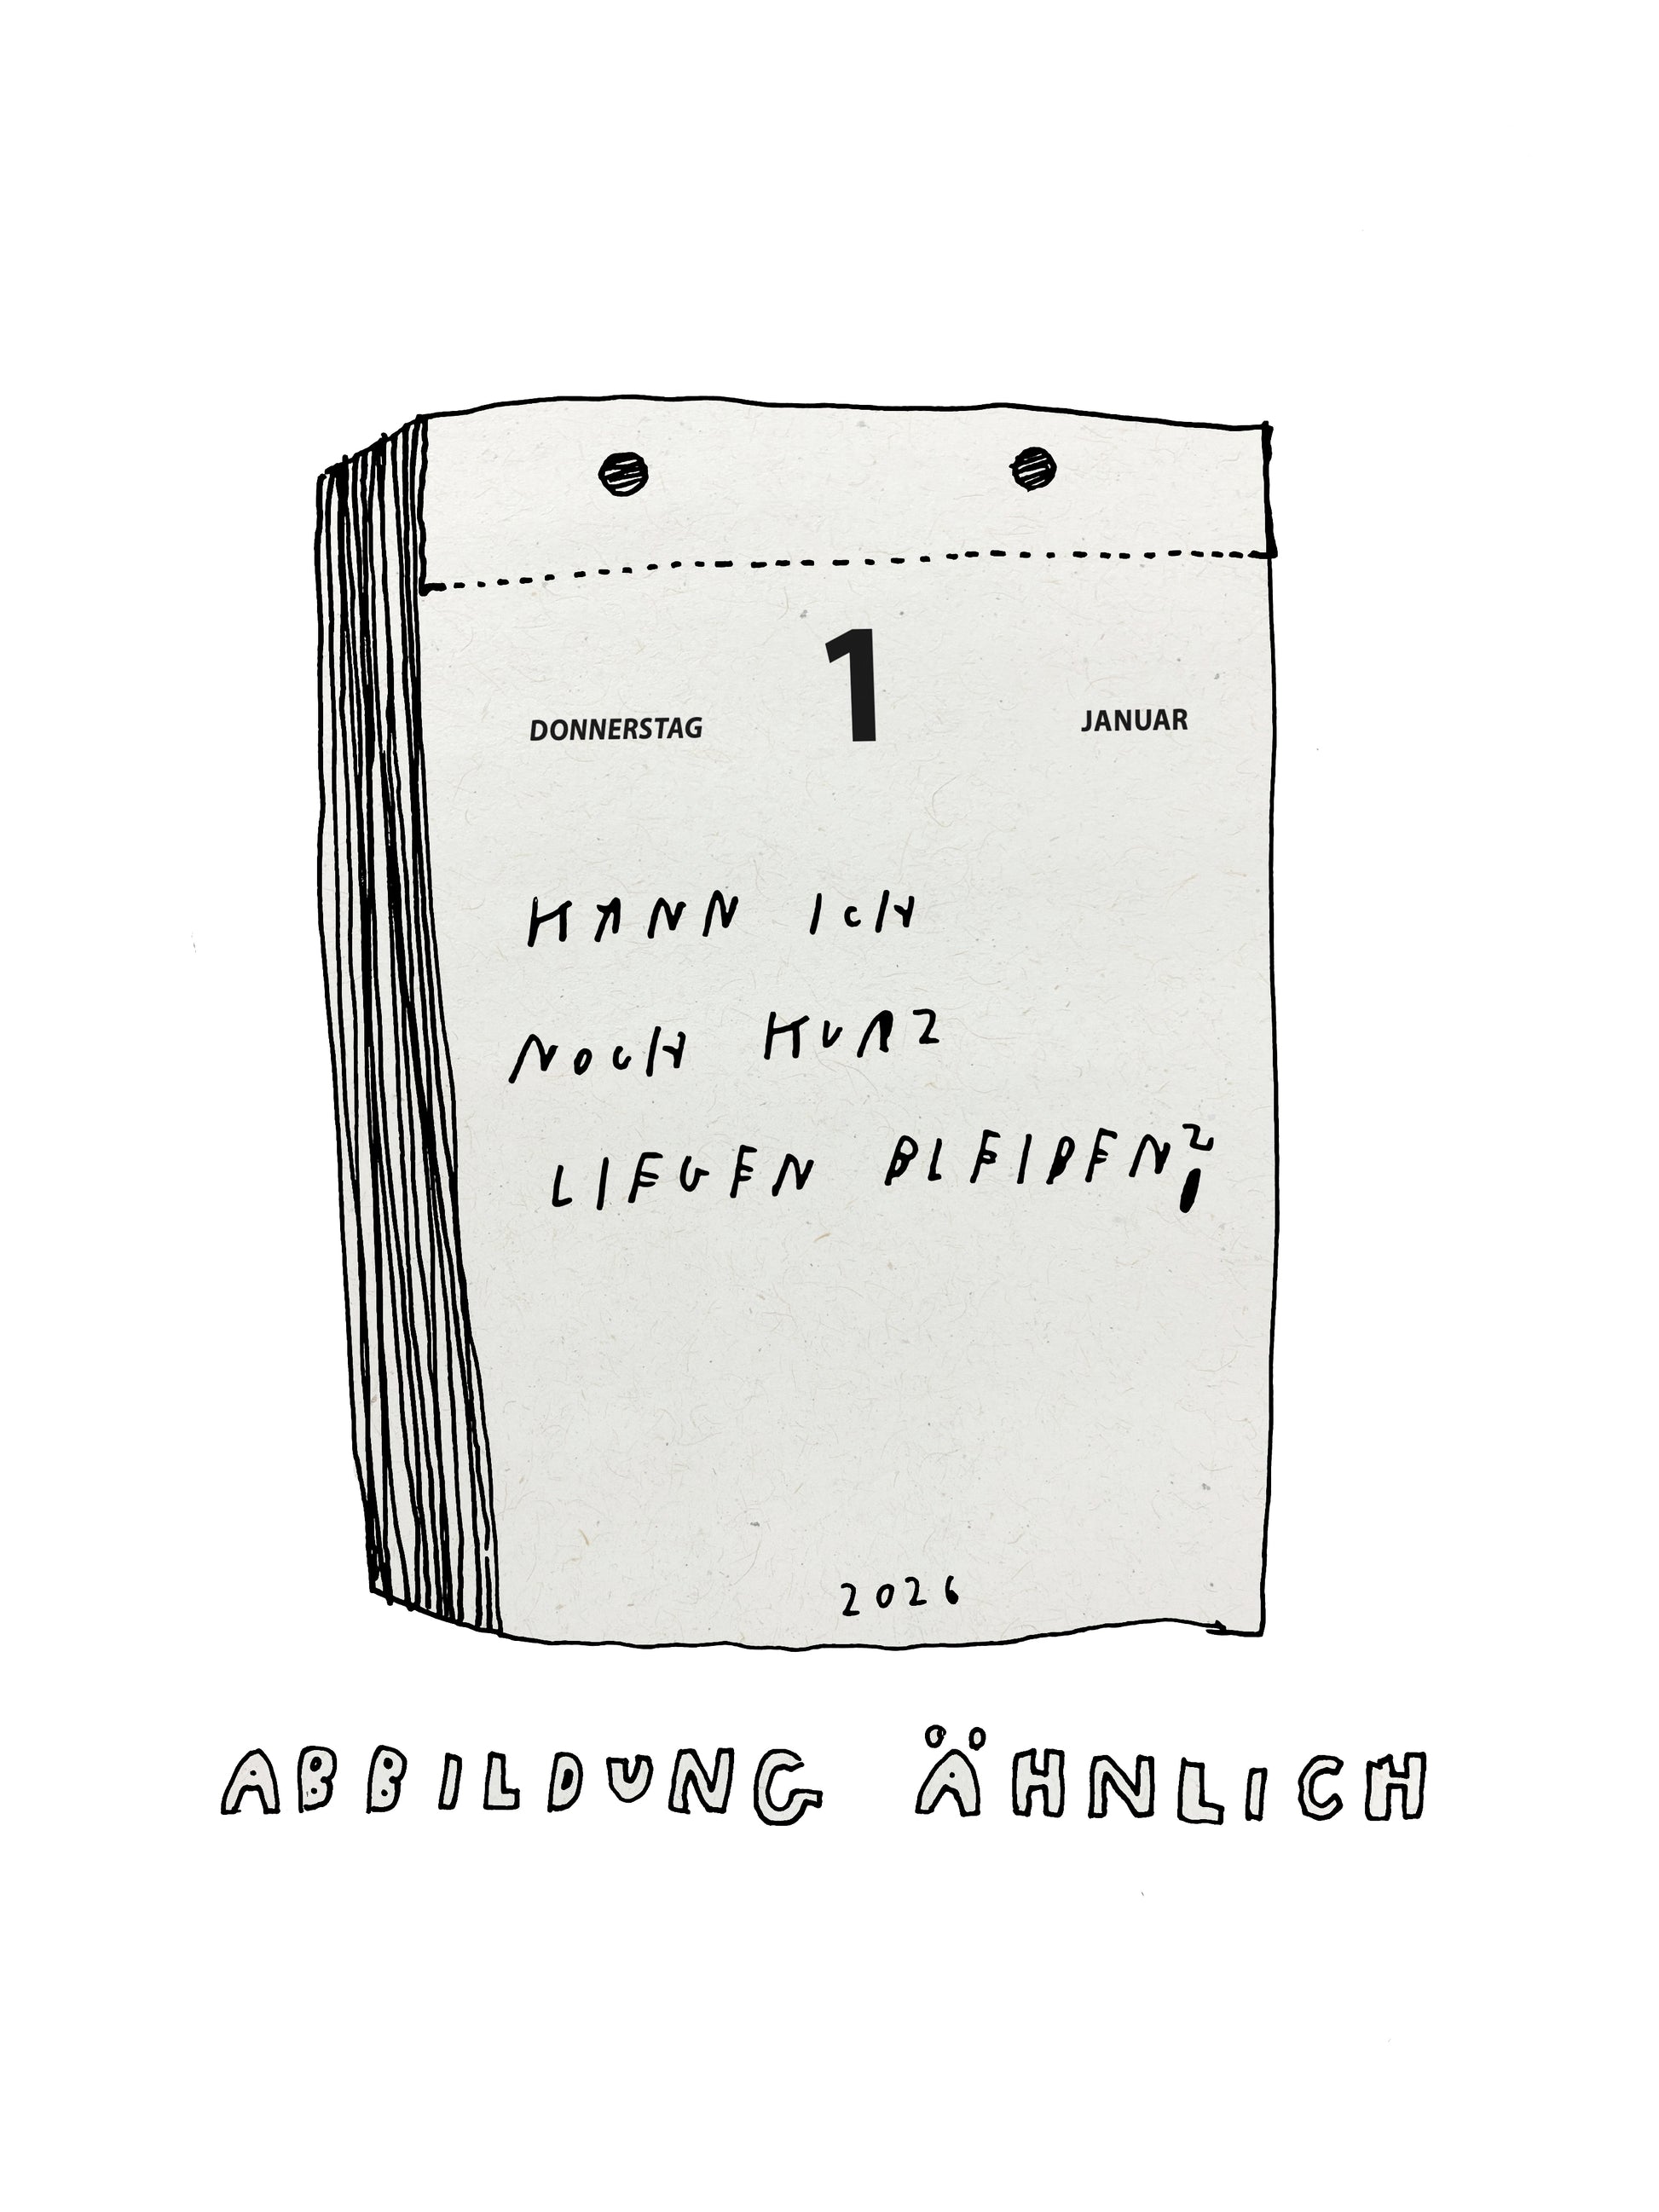 DONNERSTAG 1 JANUAR
KANN ICH
NOCH KURZ
LIEGEN BLEIBEN?
2026
ABBILDUNG ÄHNLICH